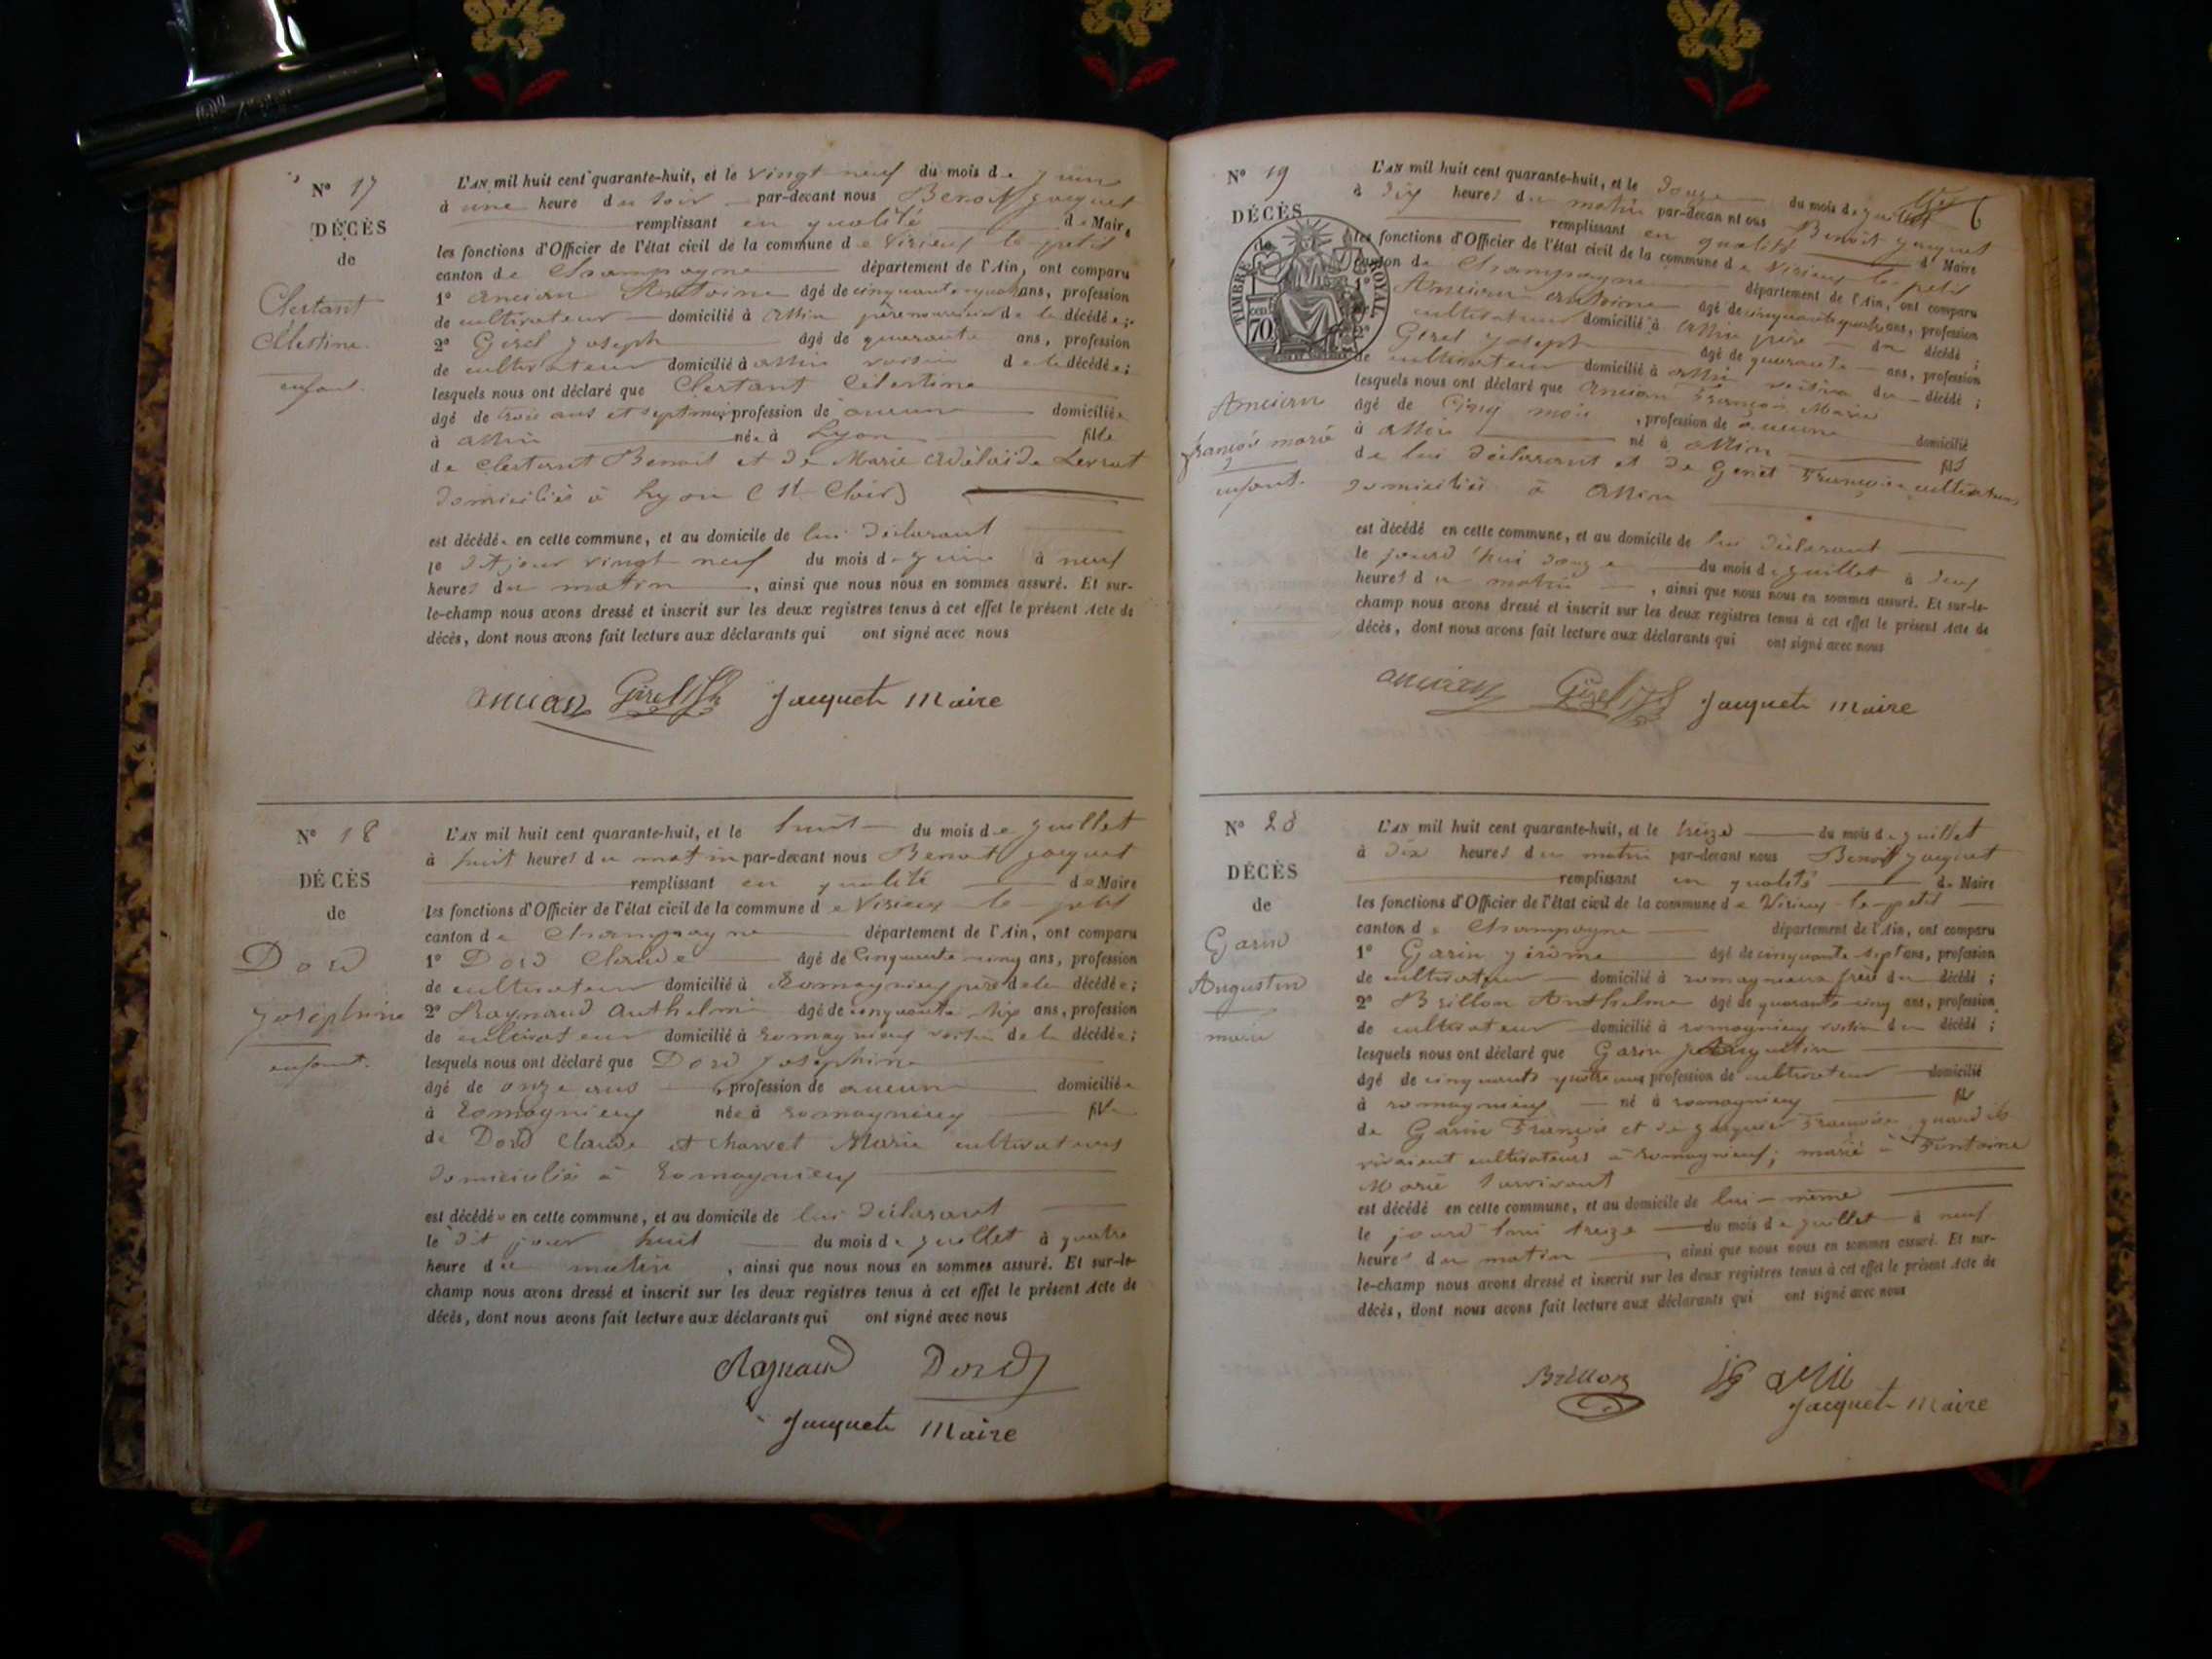 N° 17
DÉCÈS
de
Clertant
Célestine
enfant.
L'AN mil huit cent quarante-huit, et le vingt neuf du mois de juin
à une heure du soir par-devant nous Benoit Jacquet
remplissant en qualité de Maire
les fonctions d'Officier de l'état civil de la commune de Virieux le petit
canton de Champagne département de l'Ain, ont comparu
1° Ancian Antoine âgé de cinquante quatre ans, profession
de cultivateur domicilié à Assin père nourricier de la décédée;
2° Girel Joseph âgé de quarante ans, profession
de cultivateur domicilié à Assin voisin de la décédée;
lesquels nous ont déclaré que Clertant Célestine
âgé de trois ans et sept mois, profession de aucune domiciliée
à Assin née à Lyon fille
de Clertant Benoit et de Marie Adélaïde Levrat
domiciliés à Lyon (St Clair)
est décédée en cette commune, et au domicile de lui déclarant
le dit jour vingt neuf du mois de juin à neuf
heures du matin, ainsi que nous nous en sommes assuré. Et sur-
le-champ nous avons dressé et inscrit sur les deux registres tenus à cet effet le présent Acte de
décès, dont nous avons fait lecture aux déclarants qui ont signé avec nous
ancian Girel Jph Jacquet Maire
N° 18
DÉCÈS
de
Dord
Joséphine
enfant.
L'AN mil huit cent quarante-huit, et le huit du mois de juillet
à huit heures du matin par-devant nous Benoit Jacquet
remplissant en qualité de Maire
les fonctions d'Officier de l'état civil de la commune de Virieux le petit
canton de Champagne département de l'Ain, ont comparu
1° Dord Claude âgé de cinquante cinq ans, profession
de cultivateur domicilié à Romagnieux père de la décédée;
2° Raynaud Anthelme âgé de cinquante six ans, profession
de cultivateur domicilié à Romagnieux voisin de la décédée;
lesquels nous ont déclaré que Dord Joséphine
âgé de onze ans, profession de aucune domiciliée
à Romagnieux née à Romagnieux fille
de Dord Claude et Charvet Marie cultivateurs
domiciliés à Romagnieux
est décédée en cette commune, et au domicile de lui déclarant
le dit jour huit du mois de juillet à quatre
heure du matin, ainsi que nous nous en sommes assuré. Et sur-le-
champ nous avons dressé et inscrit sur les deux registres tenus à cet effet le présent Acte de
décès, dont nous avons fait lecture aux déclarants qui ont signé avec nous
Dord
Jacquet Maire
6
N° 19
DÉCÈS
de
TIMBRE ROYAL
70 cent
Ancian
françois marie
enfant.
L'AN mil huit cent quarante-huit, et le douze du mois de juillet
à dix heures du matin par-devan nt ous Benoit Jacquet
remplissant en qualité de Maire
les fonctions d'Officier de l'état civil de la commune de Virieux le petit
canton de Champagne département de l'Ain, ont comparu
1° Ancian Antoine âgé de cinquante quatre ans, profession
de cultivateur domicilié à Assin père du décédé;
2° Girel Joseph âgé de quarante ans, profession
de cultivateur domicilié à Assin voisin du décédé;
lesquels nous ont déclaré que Ancian François Marie
âgé de cinq mois, profession de aucune domicilié
à Assin né à Assin fils
de lui déclarant et de Genet Françoise cultivateurs
domiciliés à Assin
est décédé en cette commune, et au domicile de lui déclarant
le jourd'hui douze du mois de juillet à deux
heures du matin, ainsi que nous nous en sommes assuré. Et sur-le-
champ nous avons dressé et inscrit sur les deux registres tenus à cet effet le présent Acte de
décès, dont nous avons fait lecture aux déclarants qui ont signé avec nous
ancian Girel Jph Jacquet Maire
N° 20
DÉCÈS
de
Garin
Augustin
marié
L'AN mil huit cent quarante-huit, et le treize du mois de juillet
à dix heures du matin par-devant nous Benoit Jacquet
remplissant en qualité de Maire
les fonctions d'Officier de l'état civil de la commune de Virieux le petit
canton de Champagne département de l'Ain, ont comparu
1° Garin Jérôme âgé de cinquante sept ans, profession
de cultivateur domicilié à Romagnieux frère du décédé;
2° Brillon Anthelme âgé de quarante cinq ans, profession
de cultivateur domicilié à Romagnieux voisin du décédé;
lesquels nous ont déclaré que Garin Augustin
âgé de cinquante quatre ans profession de cultivateur domicilié
à Romagnieux né à Romagnieux fils
de Garin François et de Jacquet Françoise quand ils
vivaient cultivateurs à Romagnieux; marié à Fontaine
Marie survivant
est décédé en cette commune, et au domicile de lui-même
le jourd'hui treize du mois de juillet à neuf
heures du matin, ainsi que nous nous en sommes assuré. Et sur-
le-champ nous avons dressé et inscrit sur les deux registres tenus à cet effet le présent Acte de
décès, dont nous avons fait lecture aux déclarants qui ont signé avec nous
Brillon
Jacquet Maire